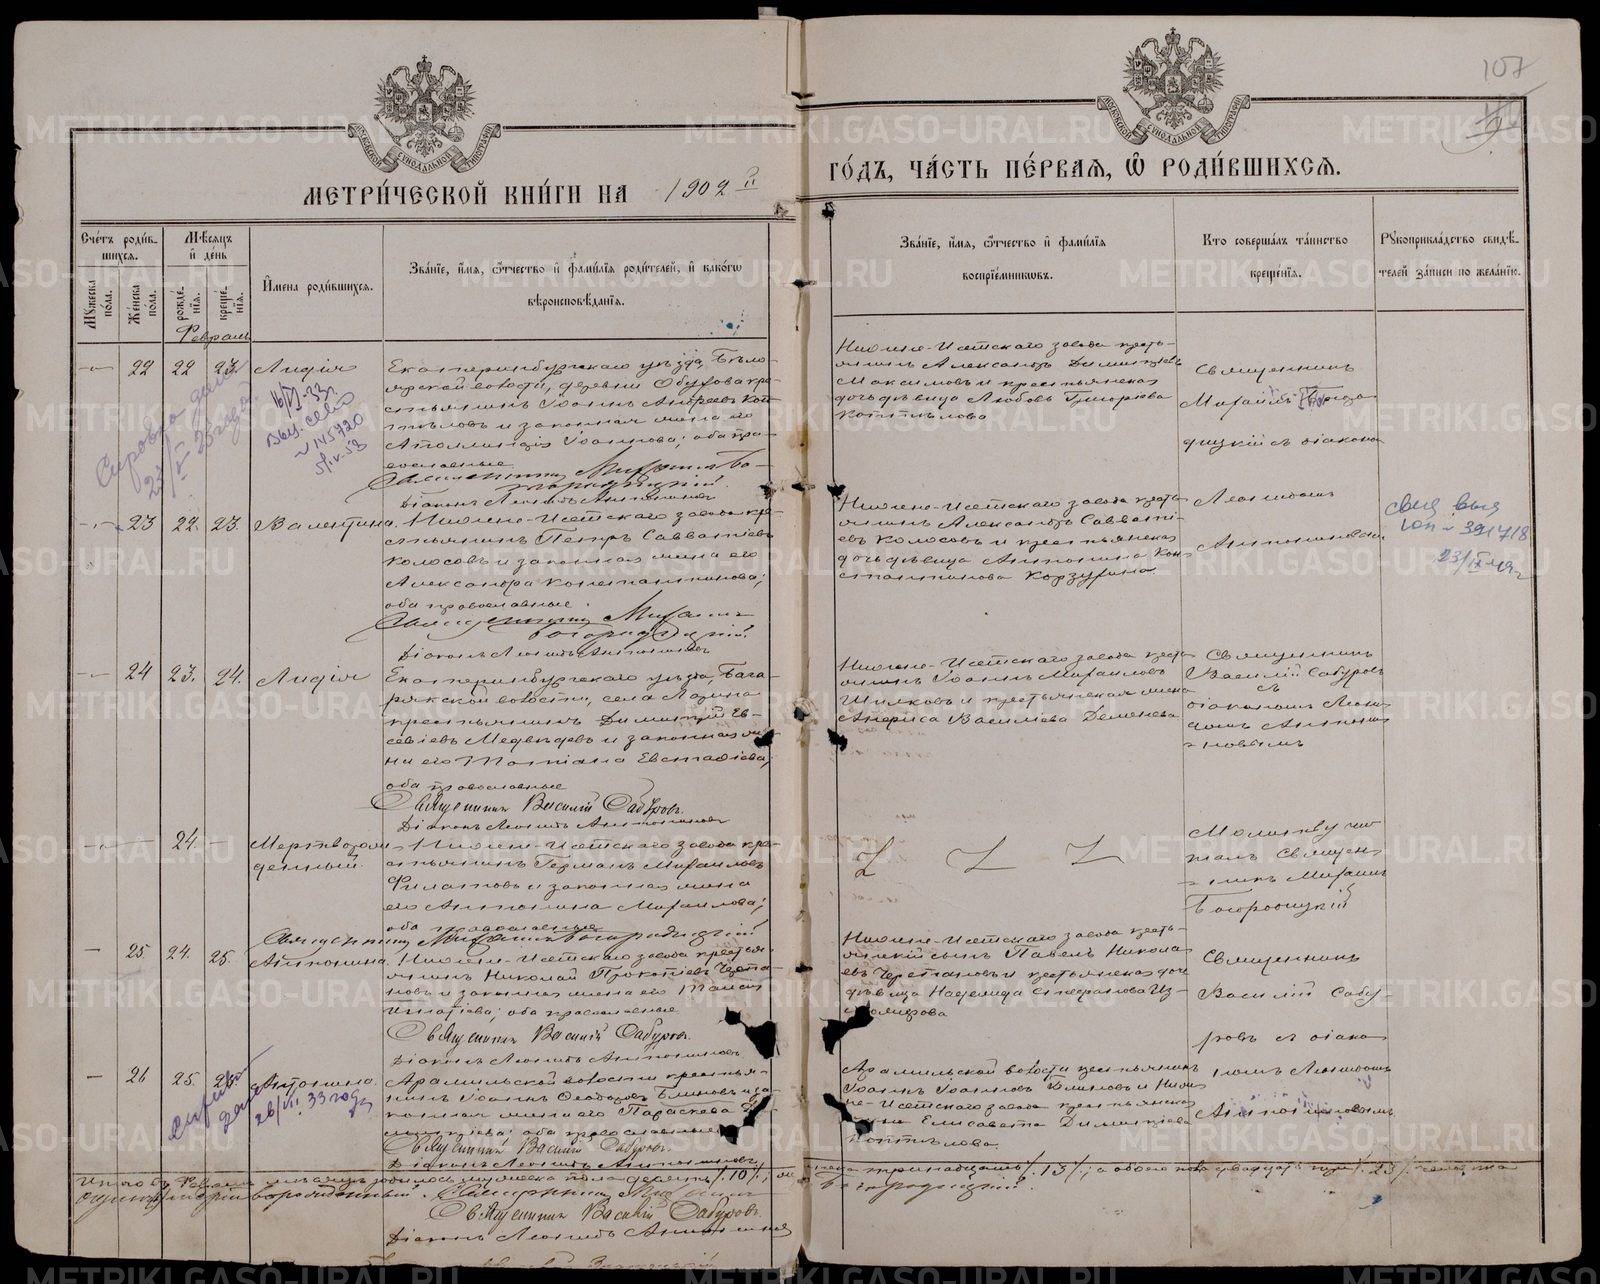 107
МОСКОВСКОЙ СѴНОДАЛЬНОЙ ТИПОГРАФІИ
МОСКОВСКОЙ СѴНОДАЛЬНОЙ ТИПОГРАФІИ
МЕТРИ́ЧЕСКОЙ КНИ́ГИ НА 1902 й
ГО́ДЪ, ЧА́СТЬ ПЕ́РВАЯ, Ѡ РОДИ́ВШИХСЯ.
Сче́тъ роди́в-
шихся.
Мꙋжеска пола.
Же́нска по́ла.
Мѣ́сяцъ
и҆ де́нь
рожде́-
нїя.
креще́-
нїя.
И҆мена роди́вшихся.
Зва́нїе, и҆́мя, ѻ҆́тчество и҆ фами́лїя роди́телей, и҆ како́гѡ
вѣроисповѣ́данїя.
Зва́нїе, и҆́мя, ѻ҆́тчество и҆ фами́лїя
воспрїе́мникѡвъ.
Кто соверша́лъ та́инство
креще́нїя.
Рꙋкоприкла́дство свидѣ́-
телей за́писи по жела́нїю.
Февраль
22 22 23. Лидія
Екатеринбургскаго уѣзда, Бѣло-
ярской волости, деревни Обухова кре-
стьянинъ Іоаннъ Андреевъ Коп-
тѣловъ и законная жена его
Аполлинарія Іоаннова; оба пра-
вославные
Священникъ Михаилъ Бо-
городицкій.
Діаконъ Леонидъ Антониновъ
Нижне-Исетскаго завода кресть-
янинъ Александръ Димитріевъ
Максимовъ и крестьянская
дочь дѣвица Любовь Григорьева
Коптѣлова
Священникъ
Михаилъ Богоро
дицкій съ діакономъ
Леонидомъ
Антониновымъ
Справка дана
23/V 25 года.
16/VI-33г
Выд. св-во
№ 145720
5/IV-53
23 22. 23. Валентина.
Нижне-Исетскаго завода кре-
стьянинъ Петръ Савватіевъ
Колосовъ и законная жена его
Александра Константинова;
оба православные.
Священникъ Михаилъ
Богородицкій.
Діаконъ Леонидъ Антониновъ
Нижне-Исетскаго завода кресть-
янинъ Александръ Савваті-
евъ Колосовъ и крестьянская
дочь дѣвица Антонина Кон-
стантинова Корзухина.
23/IX-49г
24 23. 24. Лидія
Екатеринбургскаго уѣзда, Бага-
рякской волости, села
крестьянинъ Димитрій Ев-
севіевъ Медвѣдевъ и законная же-
на его Татіана Евстафіева;
оба православные
Священникъ Василій Сабуровъ.
Діаконъ Леонидъ Антониновъ
Нижне-Исетскаго завода кресть-
янинъ Іоаннъ Михаиловъ
и крестьянская жена
Васильева Деменева
Священникъ
Василій Сабуровъ
съ
діакономъ Леони-
домъ Антони-
новымъ
24. Мертворож-
денный.
Нижне-Исетскаго завода кре-
стьянинъ Германъ Михаиловъ
Филатовъ и законная жена
его Антонина Михаилова;
оба православные
Священникъ Михаилъ Богородицкій
Молитву чи-
талъ Священ-
никъ Михаилъ
Богородицкій
25. 24. 25. Антонина.
Нижне-Исетскаго завода крестья-
нинъ Николай Прокопіевъ Черепа-
новъ и законная жена его Таисія
Игнатіева; оба православные
Священникъ Василій Сабуровъ.
Діаконъ Леонидъ Антониновъ
Нижне-Исетскаго завода кресть-
янскій сынъ Павелъ Никола-
евъ Черепановъ и крестьянская дочь
дѣвица Надежда Стефанова Из-
можерова
Священникъ
Василій Сабу-
ровъ съ діако-
номъ Леонидомъ
Антониновымъ
26 25. 26. Антонина.
Арамильской волости крестья-
нинъ Іоаннъ Ѳеодоровъ Блиновъ и за-
конная жена его Параскева
оба православные
Священникъ Василій Сабуровъ.
Діаконъ Леонидъ Антониновъ
Арамильской волости крестьянинъ
Іоаннъ Іоанновъ Блиновъ и Ниж-
не-Исетскаго завода крестьянская
жена Елисавета Димитріева
Коптѣлова.
Справка
дана
26/VII 33 года
Итого въ Февралѣ мѣсяцѣ родилось мужеска пола десять /10/, женска тринадцать /13/, а обоего пола двадцать три /23/ человѣка
одинъ мертворожденный. Священникъ Михаилъ Богородицкій.
Священникъ Василій Сабуровъ.
Діаконъ Леонидъ Антониновъ
METRIKI.GASO-URAL.RU